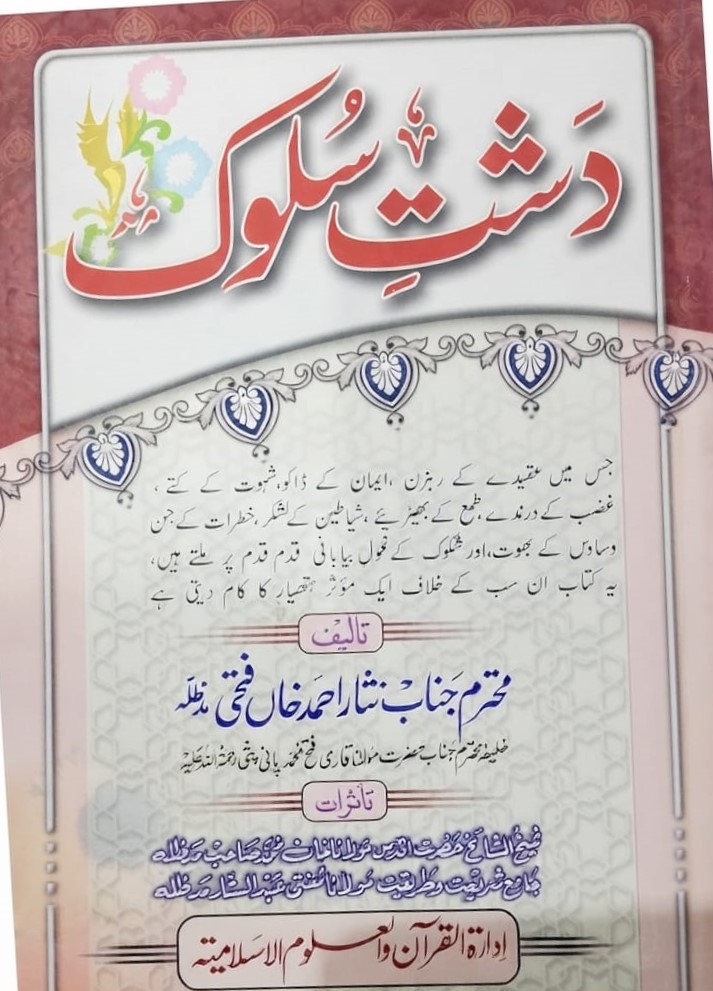 دَشتِ سُلوک
جس میں عقیدے کے رہزن ،ایمان کے ڈاکو،شہوت کے کتے ،
غضب کے درندے ،طمع کے بھیڑیئے ،شیاطین کے لشکر ،خطرات کے جن
وساوس کے بھوت،اور شکوک کے غول بیابانی قدم قدم پر ملتے ہیں،
یہ کتاب ان سب کے خلاف ایک مؤثر ہتھیار کا کام دیتی ہے
تالیف
محترم جناب نثار احمد خاں فتحی مدظلہ
خلیفہ محترم جناب حضرت مولانا قاری فتح محمد پانی پتی رحمۃ اللہ علیہ
تأثرات
شیخ المشائخ حضرت اقدس مولانا خان محمد صاحب مدظلہ
جامع شریعت و طریقت مولانا مفتی عبد الستار مدظلہ
ادارۃ القرآن والعلوم الاسلامیۃ